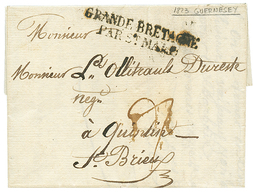 1823 GUERNESEY
GRANDE BRETAGNE
PAR ST MALO
Monsieur
Monsieur Ld Ollitrault Dureste
negt
à Quintin
St Brieux